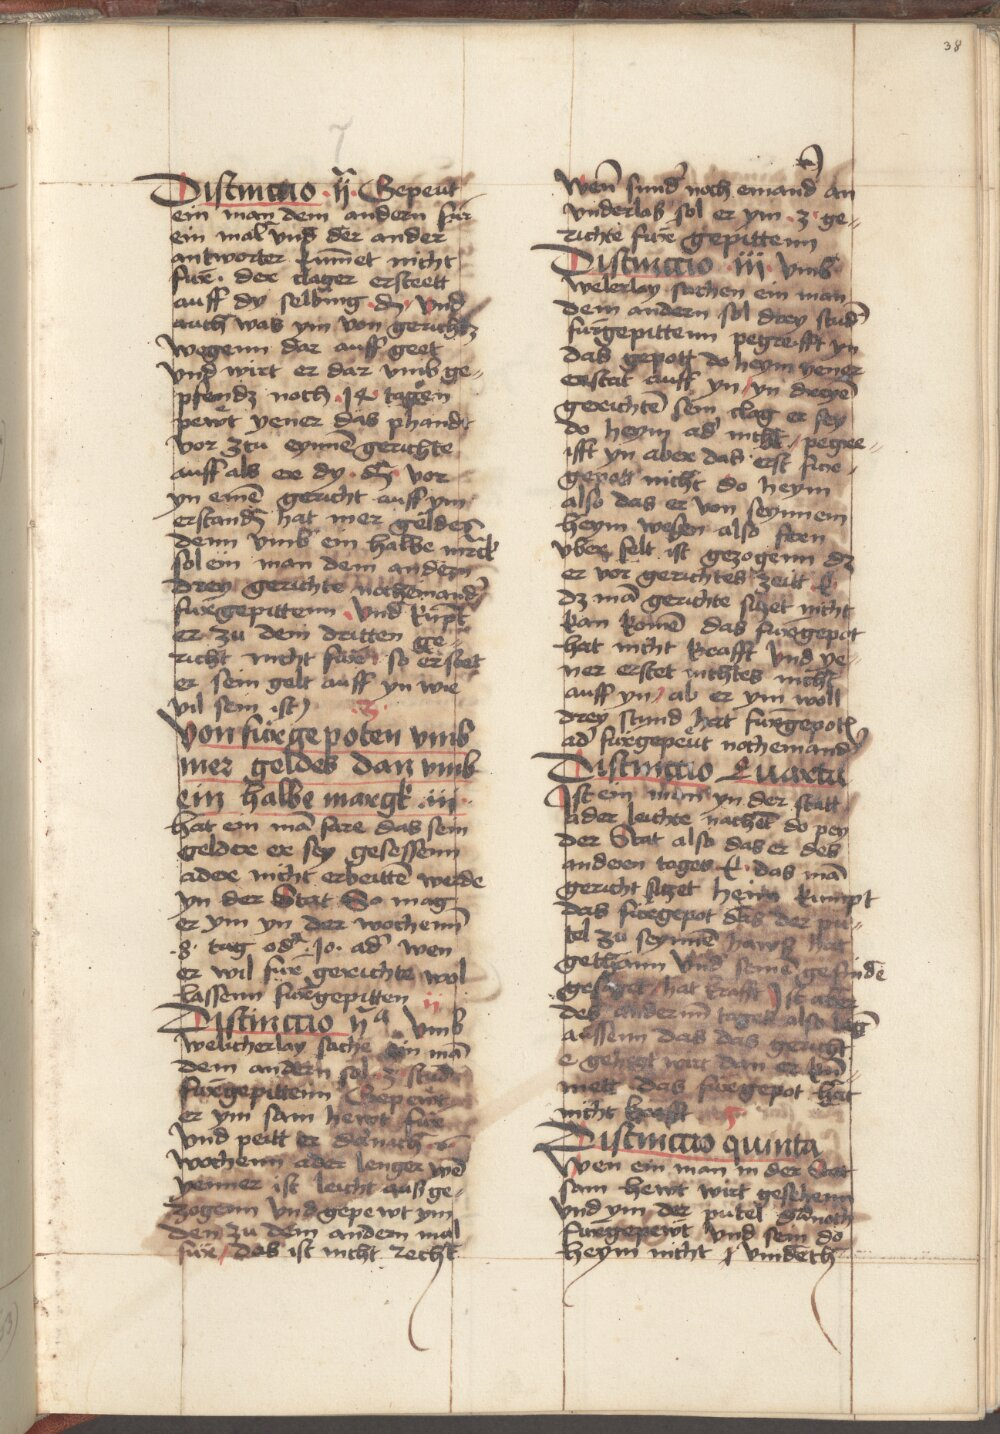 38
Distinctio · ii · Gepeut
ein man dem andern fur
ein mal vnd der ander
antworter kummet nicht
fure · der clager ersteett
auff dy selbing · vnd
auch was ym von gerichtz
wegenn dar auff geet
vnd wirt er dar vmb ge=
pfendz noch · 14 · tagen
pewt yener das phandt
vor ztu eynnē gerichte
auff als er dy vor
yn einē gericht auff ym
erstandē hat mer geldes
denn vmb ein halbe mrck
sol ein man dem andern
drey gerichte nocheinandˀ
furgepittenn · vnd kūpt
er zu dem dritten ge=
richt nicht fure so erstet
er sein gelt auff yn wie
vil sein ist 3
Von fürgepoten vmb
mer geldes dan vmb
ein halbe margk · iii ·
hat ein mā fare das sein
geldere er sey gesessenn
adere nicht erbeittē werde
yn der Stat So mag
er ym yn der wochenn
· 8 · tag odˀ · 10 · adˀ wen
er wil fur gerichte wol
lassenn furgepitten ii
Distinctio iiª Vmb
welicherlay sache ein mā
dem andern sol · 3 · stud
furgepittenn Gepewt
er ym sam hewt fur
vnd peitt er dernach · 6 ·
wochenn ader lenger wē
yenner ist leicht aus ge=
zogenn vnd gepewt ym
den zu dem andern mal
fure / das ist nicht recht
Wen sundˀ noch einandˀ an
vnderlas sol er ym · 3 · ge=
richte fure gepittenn
Distinctio · iii · Vmb
welerlay sachen ein man
dem andern sol drey studˀ
furgepittenn pegreifft yn
das gepott do heym yener
erstat auff yn / yn dreyē
gerichtē sein clag er sey
do heym adˀ nicht / pegree=
ifft yn abere das erst fure=
gepott nicht do heym
also das er von seynnem
heym wesen also fern
vber felt ist gezogenn dz
er vor gerichtes zeitt
dz mā gerichte siczet nicht
kan komē das furgepot
hat nicht krafft vnd ye=
ner erstet nichtes nicht
auff yn / ab er ym woll
drey stund hat furgepotē
adˀ furgepeut nocheinandˀ
Distinctio Quarta
Ist ein man yn der statt
ader leichte nachet do pey
der Stat also das er des
anderen tages · das mā
gericht siczet heim kumpt
das furgepot das der pu=
tel zu seynnē haws hat
gethann vnd seinē gesinde
gesaget / hat krafft / Ist ader
des anderm tages also lāg
aussenn das das gericht
e gehegt wirt dan er kū=
mett das furgepot hat
nicht krafft 5
Distinctio quinta
Wen ein man in der Stat
sam hewt wirt gesehenn
vnd ym der putel darnoch
furgepewt vnd sein do
heym nicht vindeth